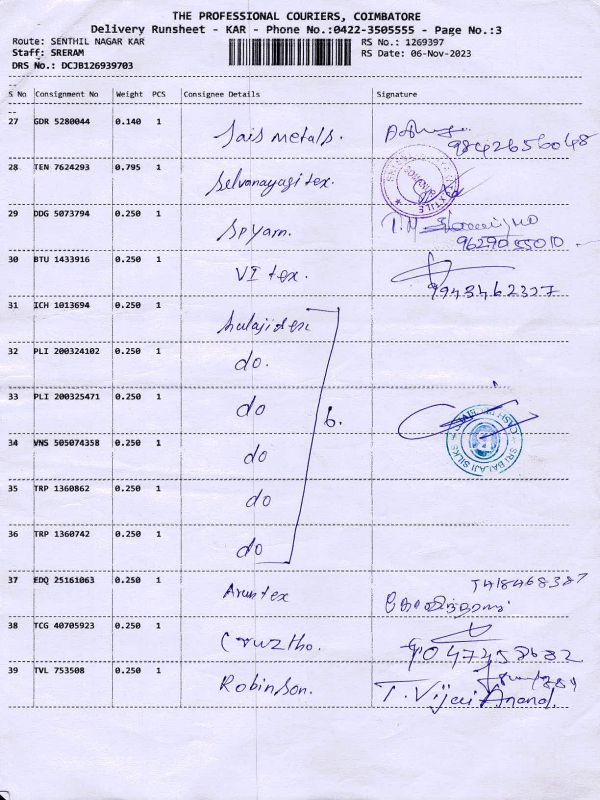 THE PROFESSIONAL COURIERS, COIMBATORE
Delivery Runsheet - KAR - Phone No.:0422-3505555 - Page No.:3
Route: SENTHIL NAGAR KAR
RS No.: 1269397
Staff: SRERAM
RS Date: 06-Nov-2023
DRS No.: DCJB126939703
S No Consignment No Weight PCS Consignee Details Signature
27 GDR 5280044 0.140 1 Sais metals.
9842656048
28 TEN 7624293 0.795 1 Selvanayagi tex.
29 DDG 5073794 0.250 1 Spyarn. T.M
9629055010
30 BTU 1433916 0.250 1 VI tex.
9943462327
31 ICH 1013694 0.250 1 balaji tex
32 PLI 200324102 0.250 1 do.
33 PLI 200325471 0.250 1 do 6.
SRI BALAJI SILKS
34 VNS 505074358 0.250 1 do
35 TRP 1360862 0.250 1 do
36 TRP 1360742 0.250 1 do
37 EDQ 25161063 0.250 1 Arun tex
38 TCG 40705923 0.250 1 Cruztho.
39 TVL 753508 0.250 1 Robinson. T. Vijai Anand.